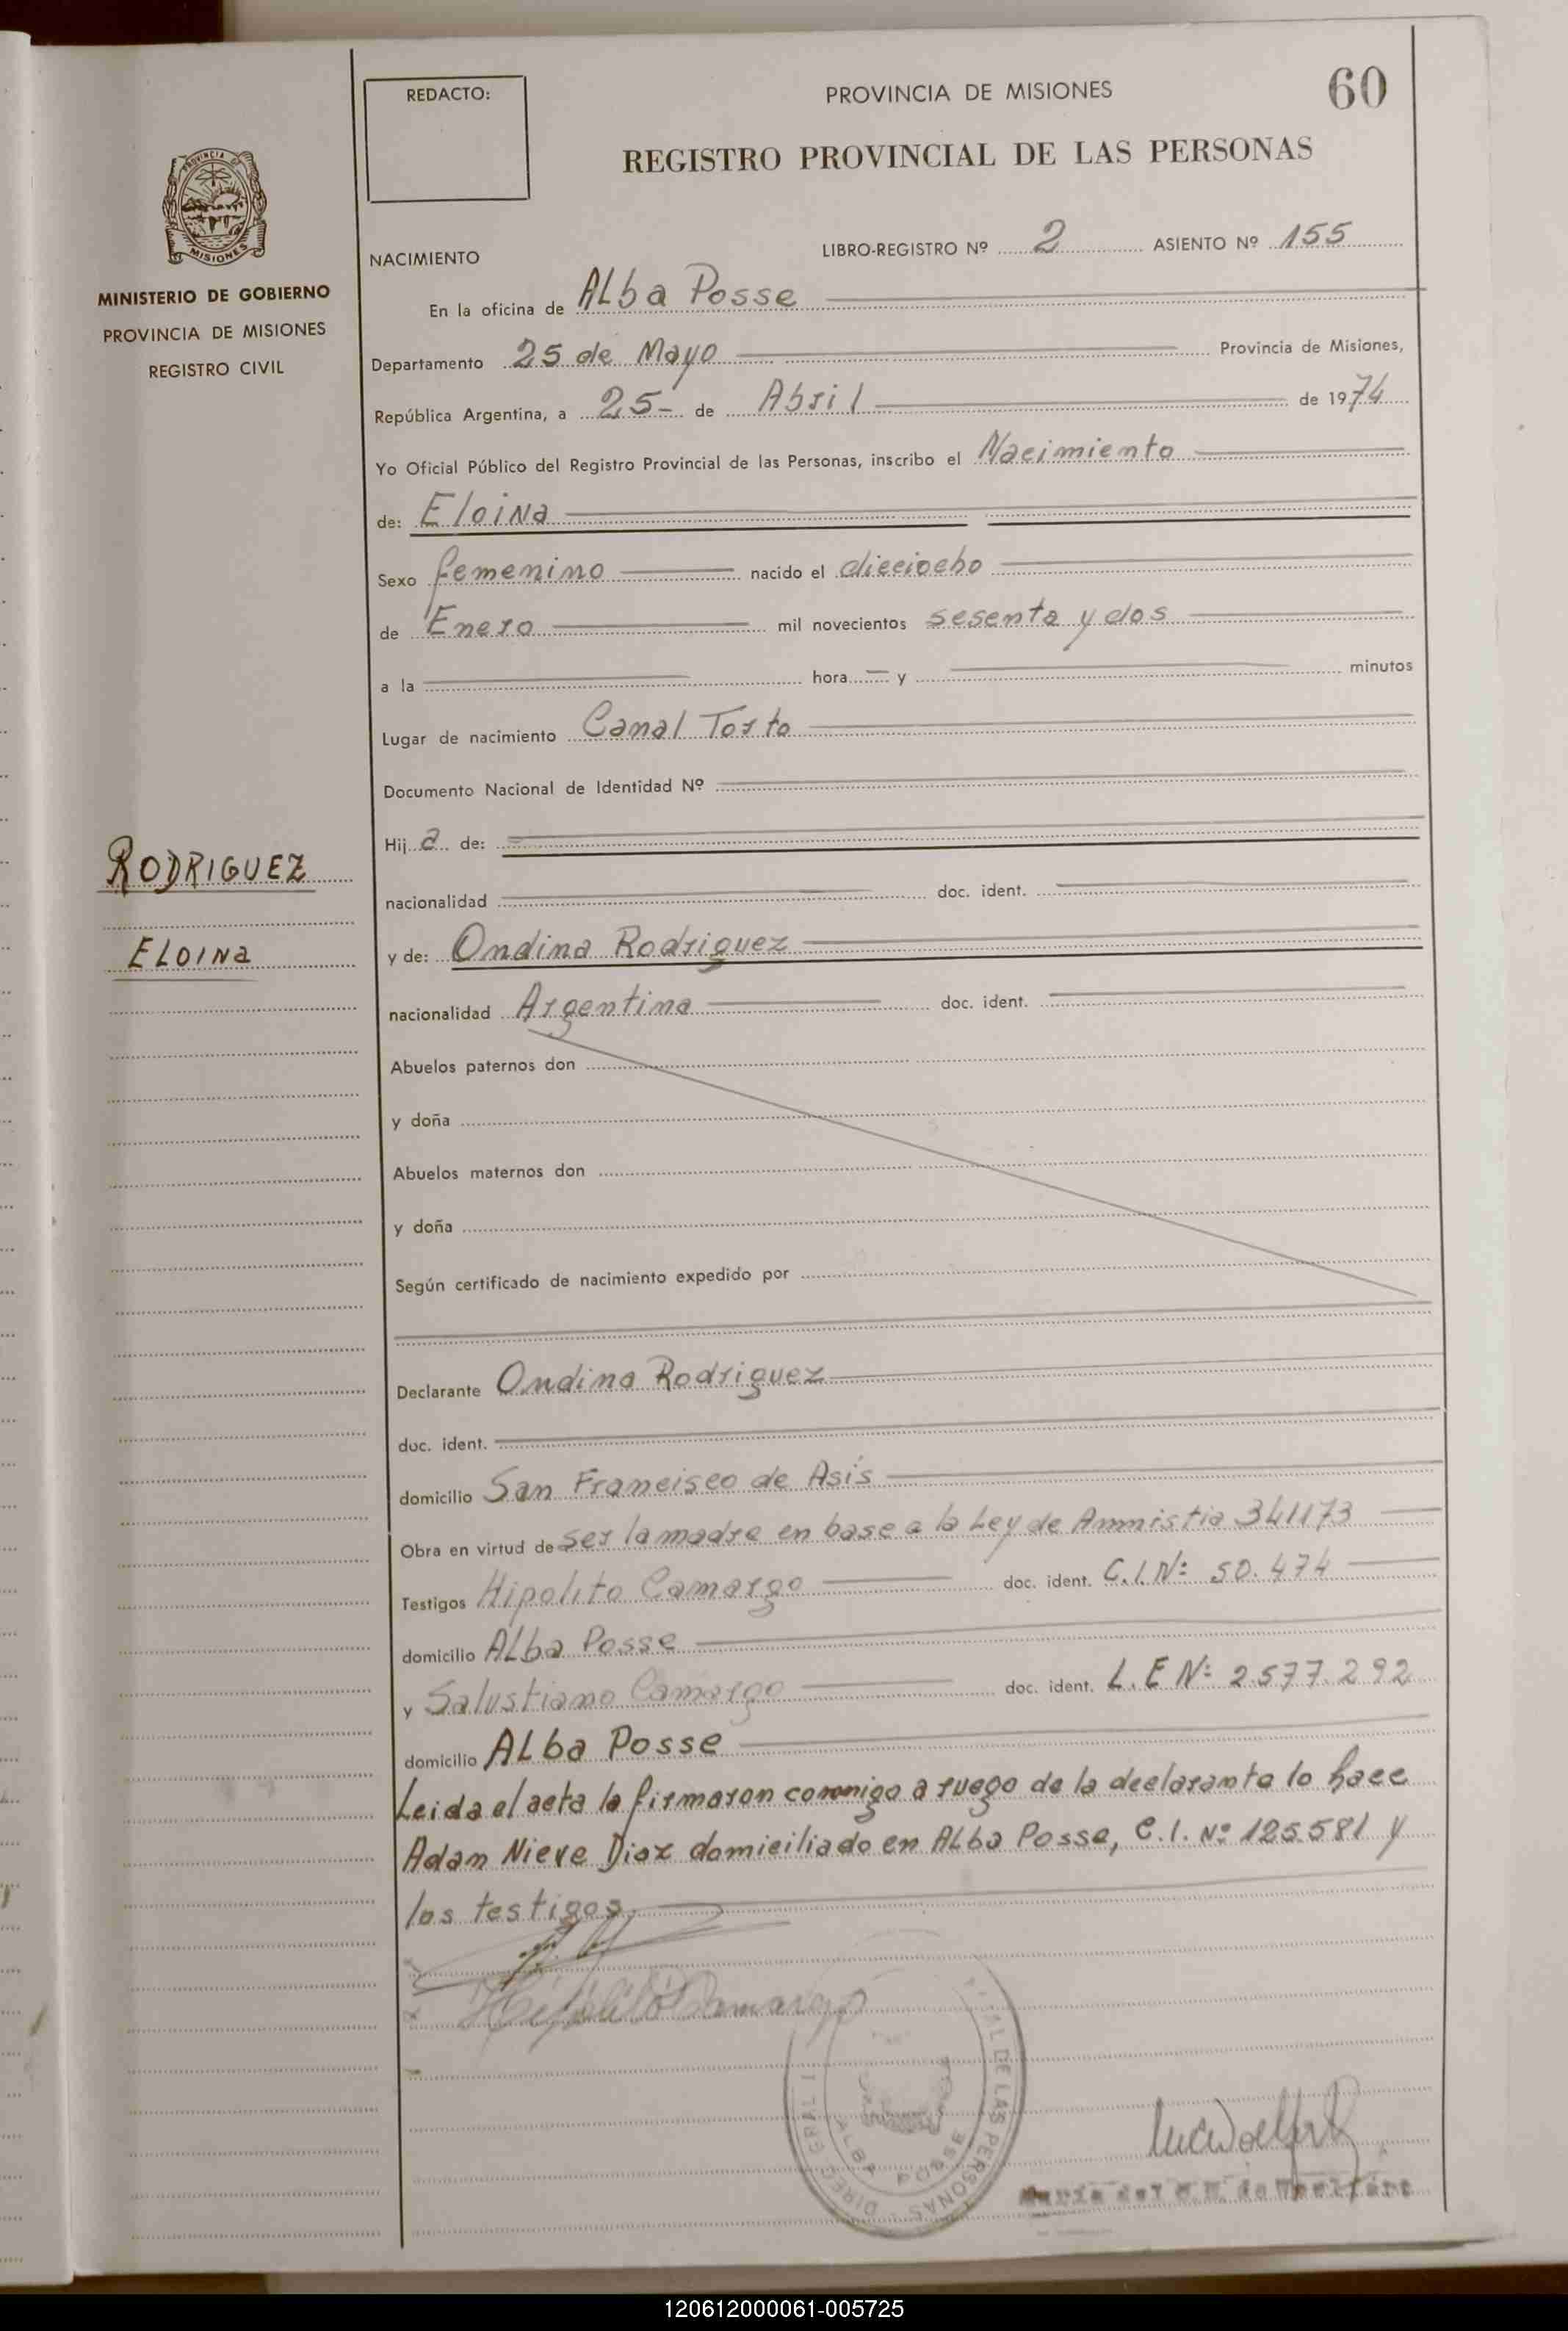 REDACTO:
PROVINCIA DE MISIONES
60
REGISTRO PROVINCIAL DE LAS PERSONAS
PROVINCIA DE
MISIONES
MINISTERIO DE GOBIERNO
PROVINCIA DE MISIONES
REGISTRO CIVIL
NACIMIENTO
LIBRO-REGISTRO Nº 2 ASIENTO Nº 155
En la oficina de ALba Posse
Departamento 25 de Mayo Provincia de Misiones,
República Argentina, a 25- de Abril de 1974
Yo Oficial Público del Registro Provincial de las Personas, inscribo el Nacimiento
de: Eloina
Sexo femenino nacido el dieciocho
de Enero mil novecientos sesenta y dos
a la hora y minutos
Lugar de nacimiento Canal Torto
Documento Nacional de Identidad Nº
Hij a de:
RODRIGUEZ
nacionalidad doc. ident.
y de: Ondina Rodriguez
ELOINA
nacionalidad Argentina doc. ident.
Abuelos paternos don
y doña
Abuelos maternos don
y doña
Según certificado de nacimiento expedido por
Declarante Ondina Rodriguez
doc. ident.
domicilio San Francisco de Asís
Obra en virtud de ser la madre en base a la Ley de Amnistia
Testigos Hipolito Camargo doc. ident. C.I.Nº: 50.474
domicilio ALba Posse
y Salustiano Camargo doc. ident. L.E Nº: 2.577.292
domicilio ALba Posse
Leida el acta la firmaron conmigo a ruego de la declaranta lo hace
Adam Nieve Diaz domiciliado en ALba Posse, C.I. Nº 125581 y
los testigos
Hipólito Camargo
ALBA POSSE
DE LAS PERSONAS
María del
120612000061-005725